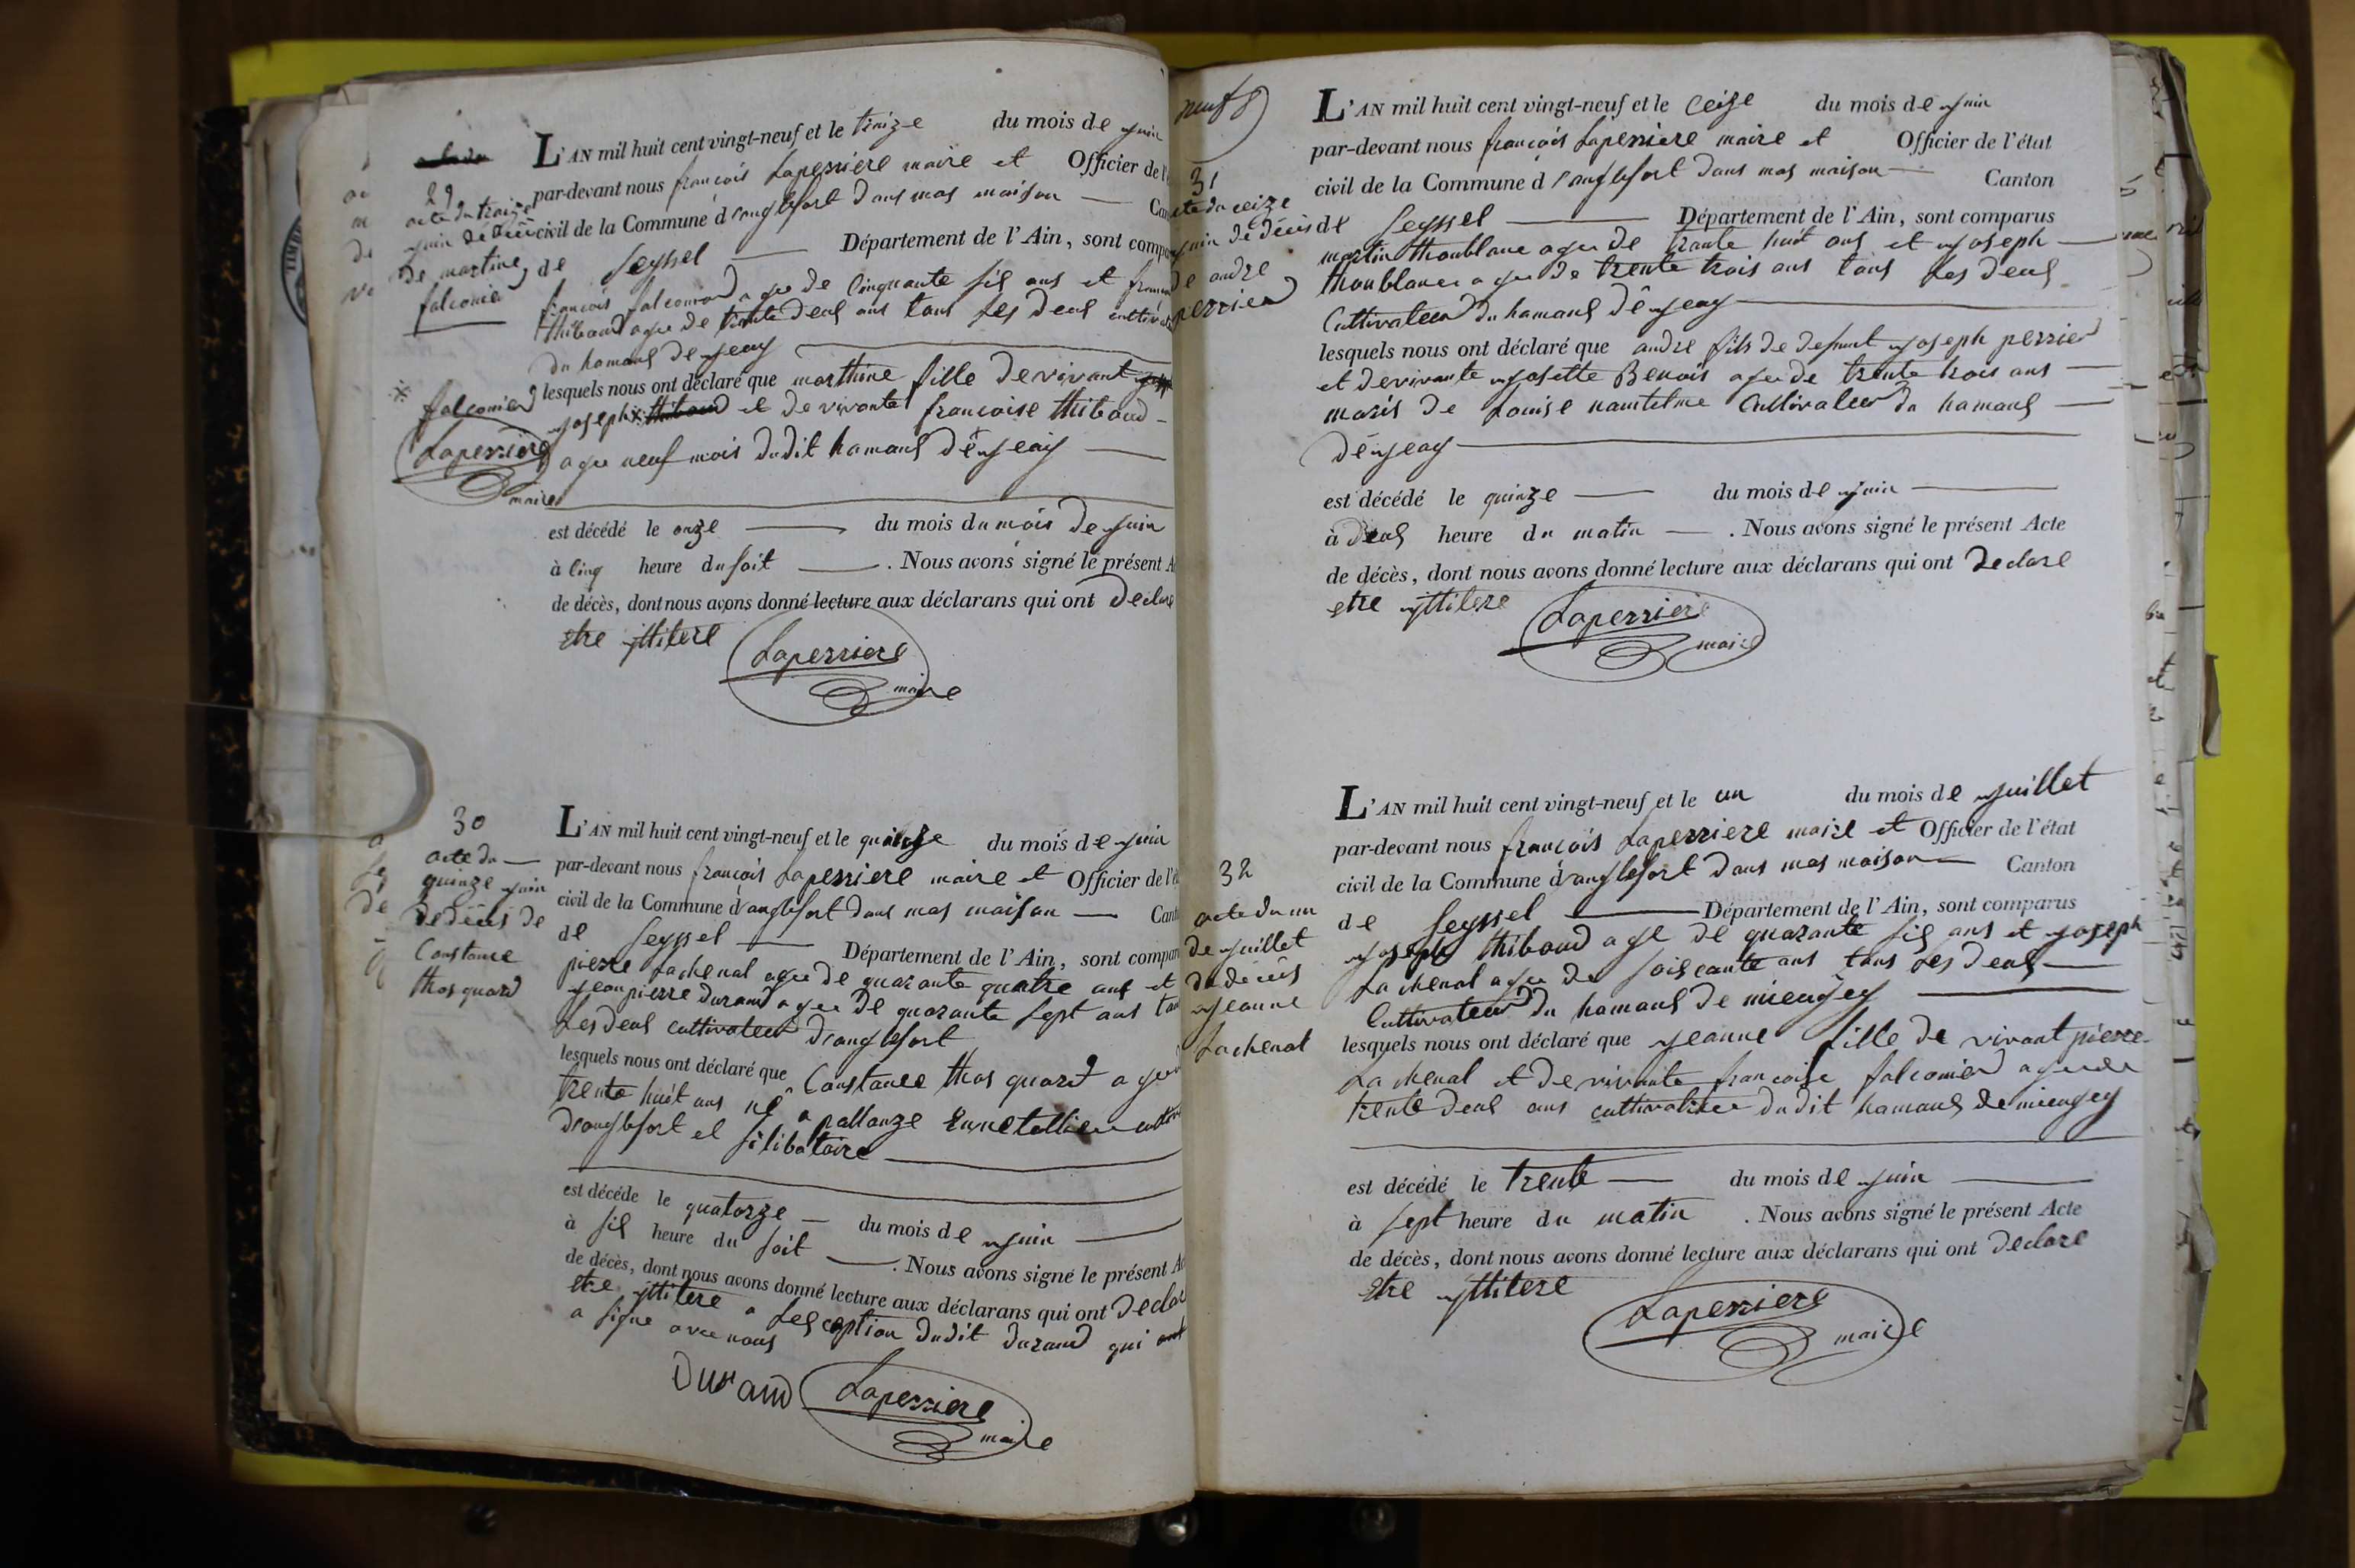 29
acte du treize
juin de décès
de martine
falconier
L'AN mil huit cent vingt-neuf et le treize du mois de juin
par-devant nous françois Laperriere maire et Officier de l'
civil de la Commune d'anglefort dans mas maison
de Seyssel Département de l'Ain, sont compa
françois falconier agee de Cinquante six ans et
thibaud agee de trente deux ans tous les deux cultiva
du hamaux de jeay
lesquels nous ont déclaré que marthine fille de vivant
joseph thibaud et de vivante francoise thibaud
falconier
Laperriere
maire
agee neuf mois dudit hamaux de jeay
est décédé le onze du mois du mois de juin
à cinq heure du soit . Nous avons signé le présent A
de décès, dont nous avons donné lecture aux déclarans qui ont Declare
etre jllitere
Laperriere
maire
30
acte du
quinze juin
de décès de
Constance
thosquard
L'AN mil huit cent vingt-neuf et le quinze du mois de juin
par-devant nous françois Laperriere maire et Officier de l'é
civil de la Commune d'anglefort dans mas maison Cant
de Seyssel Département de l'Ain, sont compar
pierre Lachenal agee de quarante quatre ans et
jean pierre durand agee de quarante sept ans
Les deux cultivateur d'anglefort
lesquels nous ont déclaré que Constance thosquard agee
trente huit ans né a pallanze
d'anglefort et silibataire
est décédé le quatorze du mois de juin
à six heure du soit . Nous avons signé le présent A
de décès, dont nous avons donné lecture aux déclarans qui ont Declar
etre jllitere a Lexception dudit durand qui
a signe avec nous
Durand
Laperriere
maire
neuf
31
acte du ceize
juin de décès
de andre
perrier
L'AN mil huit cent vingt-neuf et le ceize du mois de juin
par-devant nous françois Laperriere maire et Officier de l'état
civil de la Commune d'anglefort dans mas maison Canton
de Seyssel Département de l'Ain, sont comparus
martin thonblanc agee de trante huit ans et joseph
thonblanc agee de trente trois ans tous Les deux
Cultivateur du hamaux de jeay
lesquels nous ont déclaré que andre fils de defunt joseph perrier
et de vivante josette Benois agee de trente trois ans
maris de Louise Cultivateur du hamaux
de jeay
est décédé le quinze du mois de juin
à deux heure du matin . Nous avons signé le présent Acte
de décès, dont nous avons donné lecture aux déclarans qui ont Declare
etre jllitere
Laperriere
maire
32
acte du un
de juillet
du décès
jeanne
Lachenal
L'AN mil huit cent vingt-neuf et le un du mois de juillet
par-devant nous françois Laperriere maire et Officier de l'état
civil de la Commune d'anglefort dans mas maison Canton
de Seyssel Département de l'Ain, sont comparus
joseph thibaud age de quarante six ans et joseph
Lachenal agee de soiscante ans tous Les deux
Cultivateur du hamaux de mieugey
lesquels nous ont déclaré que jeanne fille de vivant pierre
Lachenal et de vivante francoise falconier agee de
trente deux ans cultivatrice dudit hamaux de mieugey
est décédé le trente du mois de juin
à sept heure du matin . Nous avons signé le présent Acte
de décès, dont nous avons donné lecture aux déclarans qui ont declare
etre jllitere
Laperriere
maire